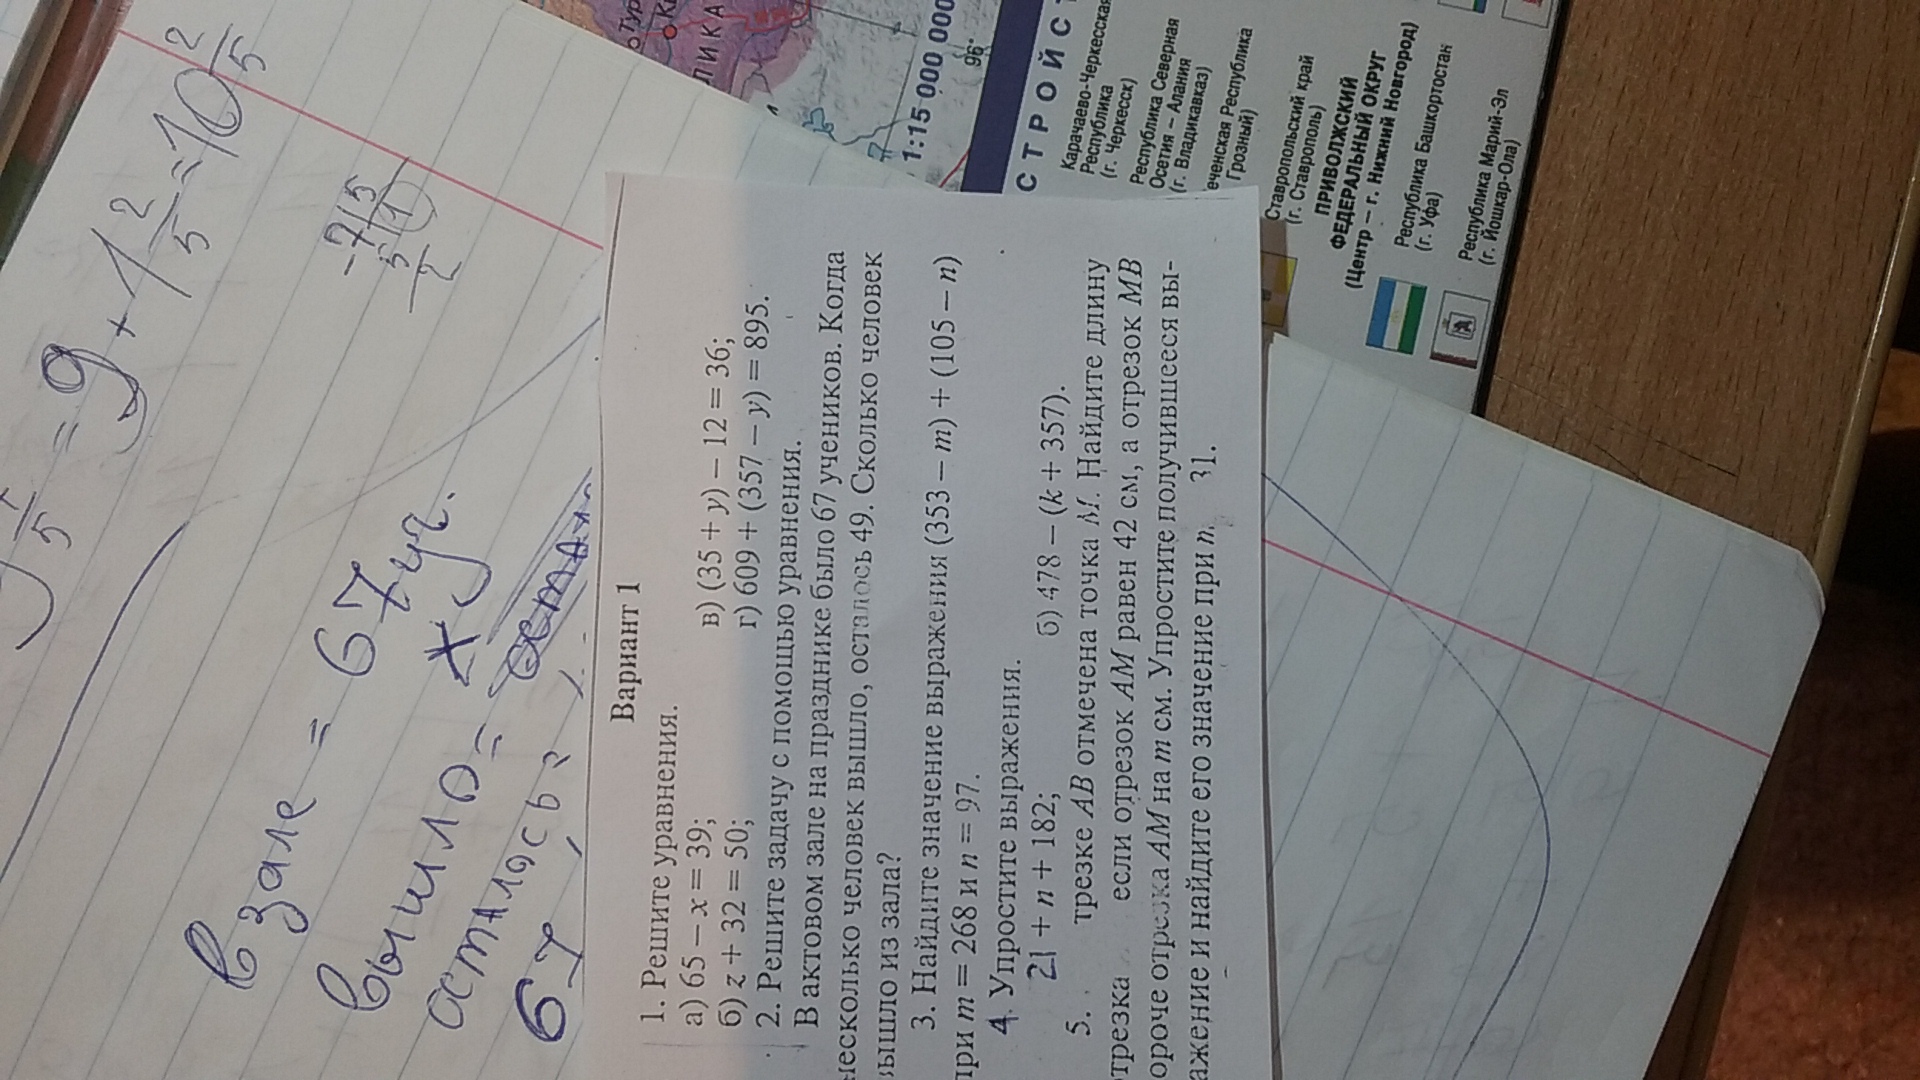 = 9 + 1 2/5 = 10 2/5
-7|5
5 1
2
в зале = 67 уч.
вышло = х
осталось =
67
Вариант 1
1. Решите уравнения.
а) 65 – x = 39; в) (35 + y) – 12 = 36;
б) z + 32 = 50; г) 609 + (357 – y) = 895.
2. Решите задачу с помощью уравнения.
В актовом зале на празднике было 67 учеников. Когда
несколько человек вышло, осталось 49. Сколько человек
вышло из зала?
3. Найдите значение выражения (353 – m) + (105 – n)
при m = 268 и n = 97.
4. Упростите выражения.
21 + n + 182; б) 478 – (k + 357).
5. трезке AB отмечена точка M. Найдите длину
отрезка если отрезок AM равен 42 см, а отрезок MB
ороче отрезка AM на m см. Упростите получившееся вы-
ажение и найдите его значение при 31.
ЛИКА
1:15 000 000
96°
СТРОЙСТ
Карачаево-Черкесская
Республика
(г. Черкесск)
Республика Северная
Осетия – Алания
(г. Владикавказ)
еченская Республика
Грозный)
Ставропольский край
(г. Ставрополь)
ПРИВОЛЖСКИЙ
ФЕДЕРАЛЬНЫЙ ОКРУГ
(Центр – г. Нижний Новгород)
Республика Башкортостан
(г. Уфа)
Республика Марий-Эл
(г. Йошкар-Ола)